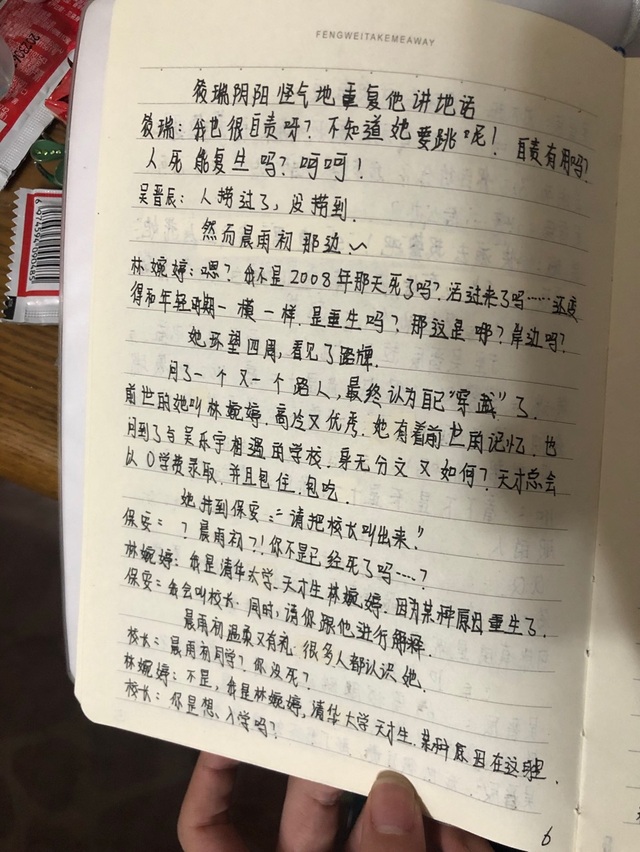 FENGWEITAKEMEAWAY
筱瑞阴阳怪气地重复他讲地话
筱瑞：我也很自责呀？不知道她要跳呢！自责有用吗？
人死能复生吗？呵呵！
吴晋辰：人捞过了，没捞到.
然而晨雨初那边~
林婉婷：嗯？我不是2008年那天死了吗？活过来了吗……还变
得和年轻时期一模一样.是重生吗？那这是哪？岸边吗？
她环望四周,看见了路牌.
问了一个又一个路人,最终认为自己“穿越”了.
前世的她叫林婉婷.高冷又优秀.她有着前世的记忆.也
问到了与吴乐宇相遇的学校.身无分文又如何？天才总会
以0学费录取.并且包住.包吃.
她找到保安：“请把校长叫出来.”
保安：？晨雨初?!你不是已经死了吗……?
林婉婷：我是清华大学天才生林婉婷.因为某种原因重生了.
保安：我会叫校长.同时,请你跟他进行解释.
晨雨初温柔又有礼.很多人都认识她.
校长：晨雨初同学？你没死？
林婉婷：不是，我是林婉婷,清华大学天才生.某种原因在这里.
校长：你是想入学吗？
6